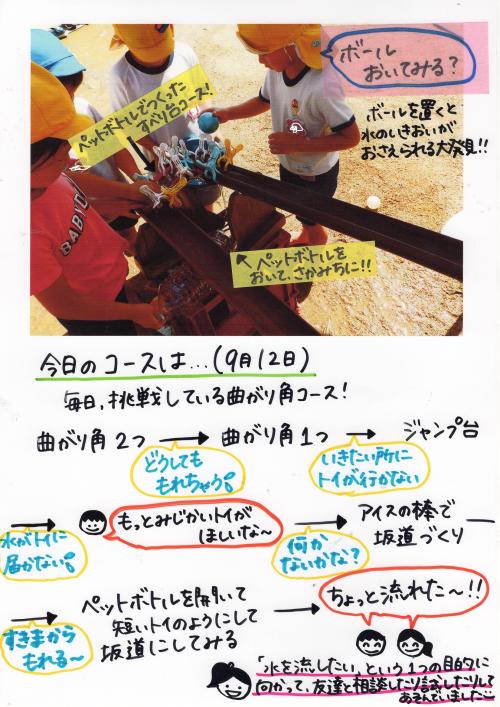 ボール
おいてみる?
ボールを置くと
水のいきおいが
おさえられる大発見!!
ペットボトルでつくった
すべり台コース!
BABYDO
ペットボトルを
おいて、さかみちに!!
今日のコースは…(9月12日)
毎日、挑戦している曲がり角コース!
曲がり角2つ → 曲がり角1つ → ジャンプ台
どうしても
もれちゃう!
いきたい所に
トイが行かない
水がトイに
届かない!
もっとみじかいトイが
ほしいな〜
何か
ないかな?
アイスの棒で
坂道づくり
すきまから
もれる〜
ペットボトルを開いて
短いトイのようにして
坂道にしてみる
ちょっと流れた〜!!
「水を流したい」という1つの目的に
向かって、友達と相談したり試したりして
あそんでいました